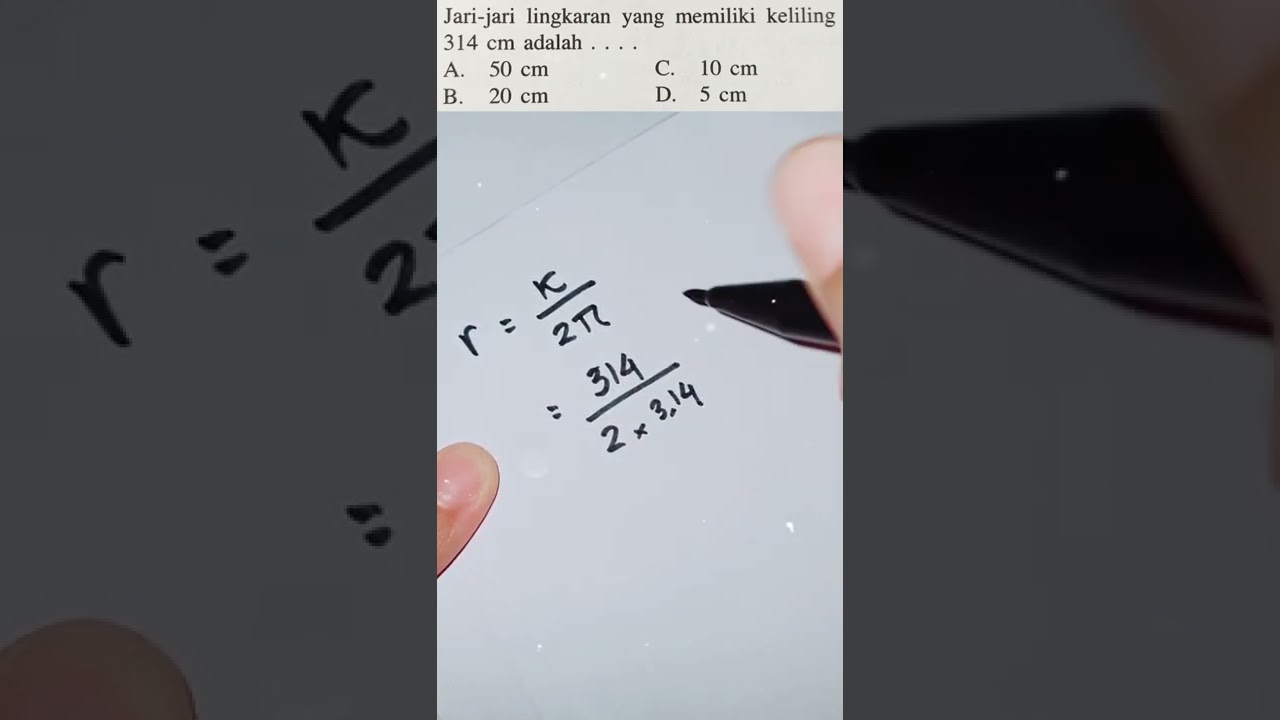 Jari-jari lingkaran yang memiliki keliling
314 cm adalah . . . .
A. 50 cm C. 10 cm
B. 20 cm D. 5 cm
r = K/2π
= 314/2 × 3,14